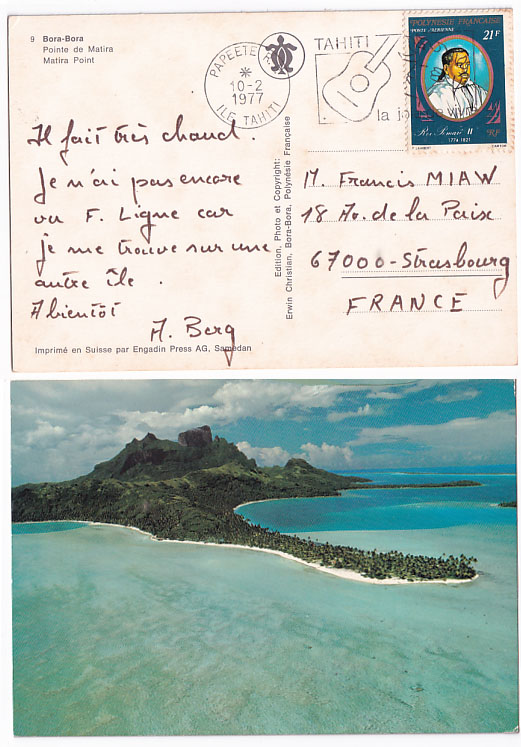 9 Bora-Bora
Pointe de Matira
Matira Point
PAPEETE
10-2
1977
ILE TAHITI
TAHITI
la
POLYNESIE FRANÇAISE
POSTE AERIENNE
21F
Roi Pomaré II
1774-1821
RF
Il fait très chaud.
Je n'ai pas encore
vu F. Ligne car
je me trouve sur une
autre île.
A bientôt
A. Berg
Edition, Photo et Copyright:
Erwin Christian, Bora-Bora, Polynésie Française
M. Francis MIAW
18 Av. de la Paix
67000-Strasbourg
FRANCE
Imprimé en Suisse par Engadin Press AG, Samedan